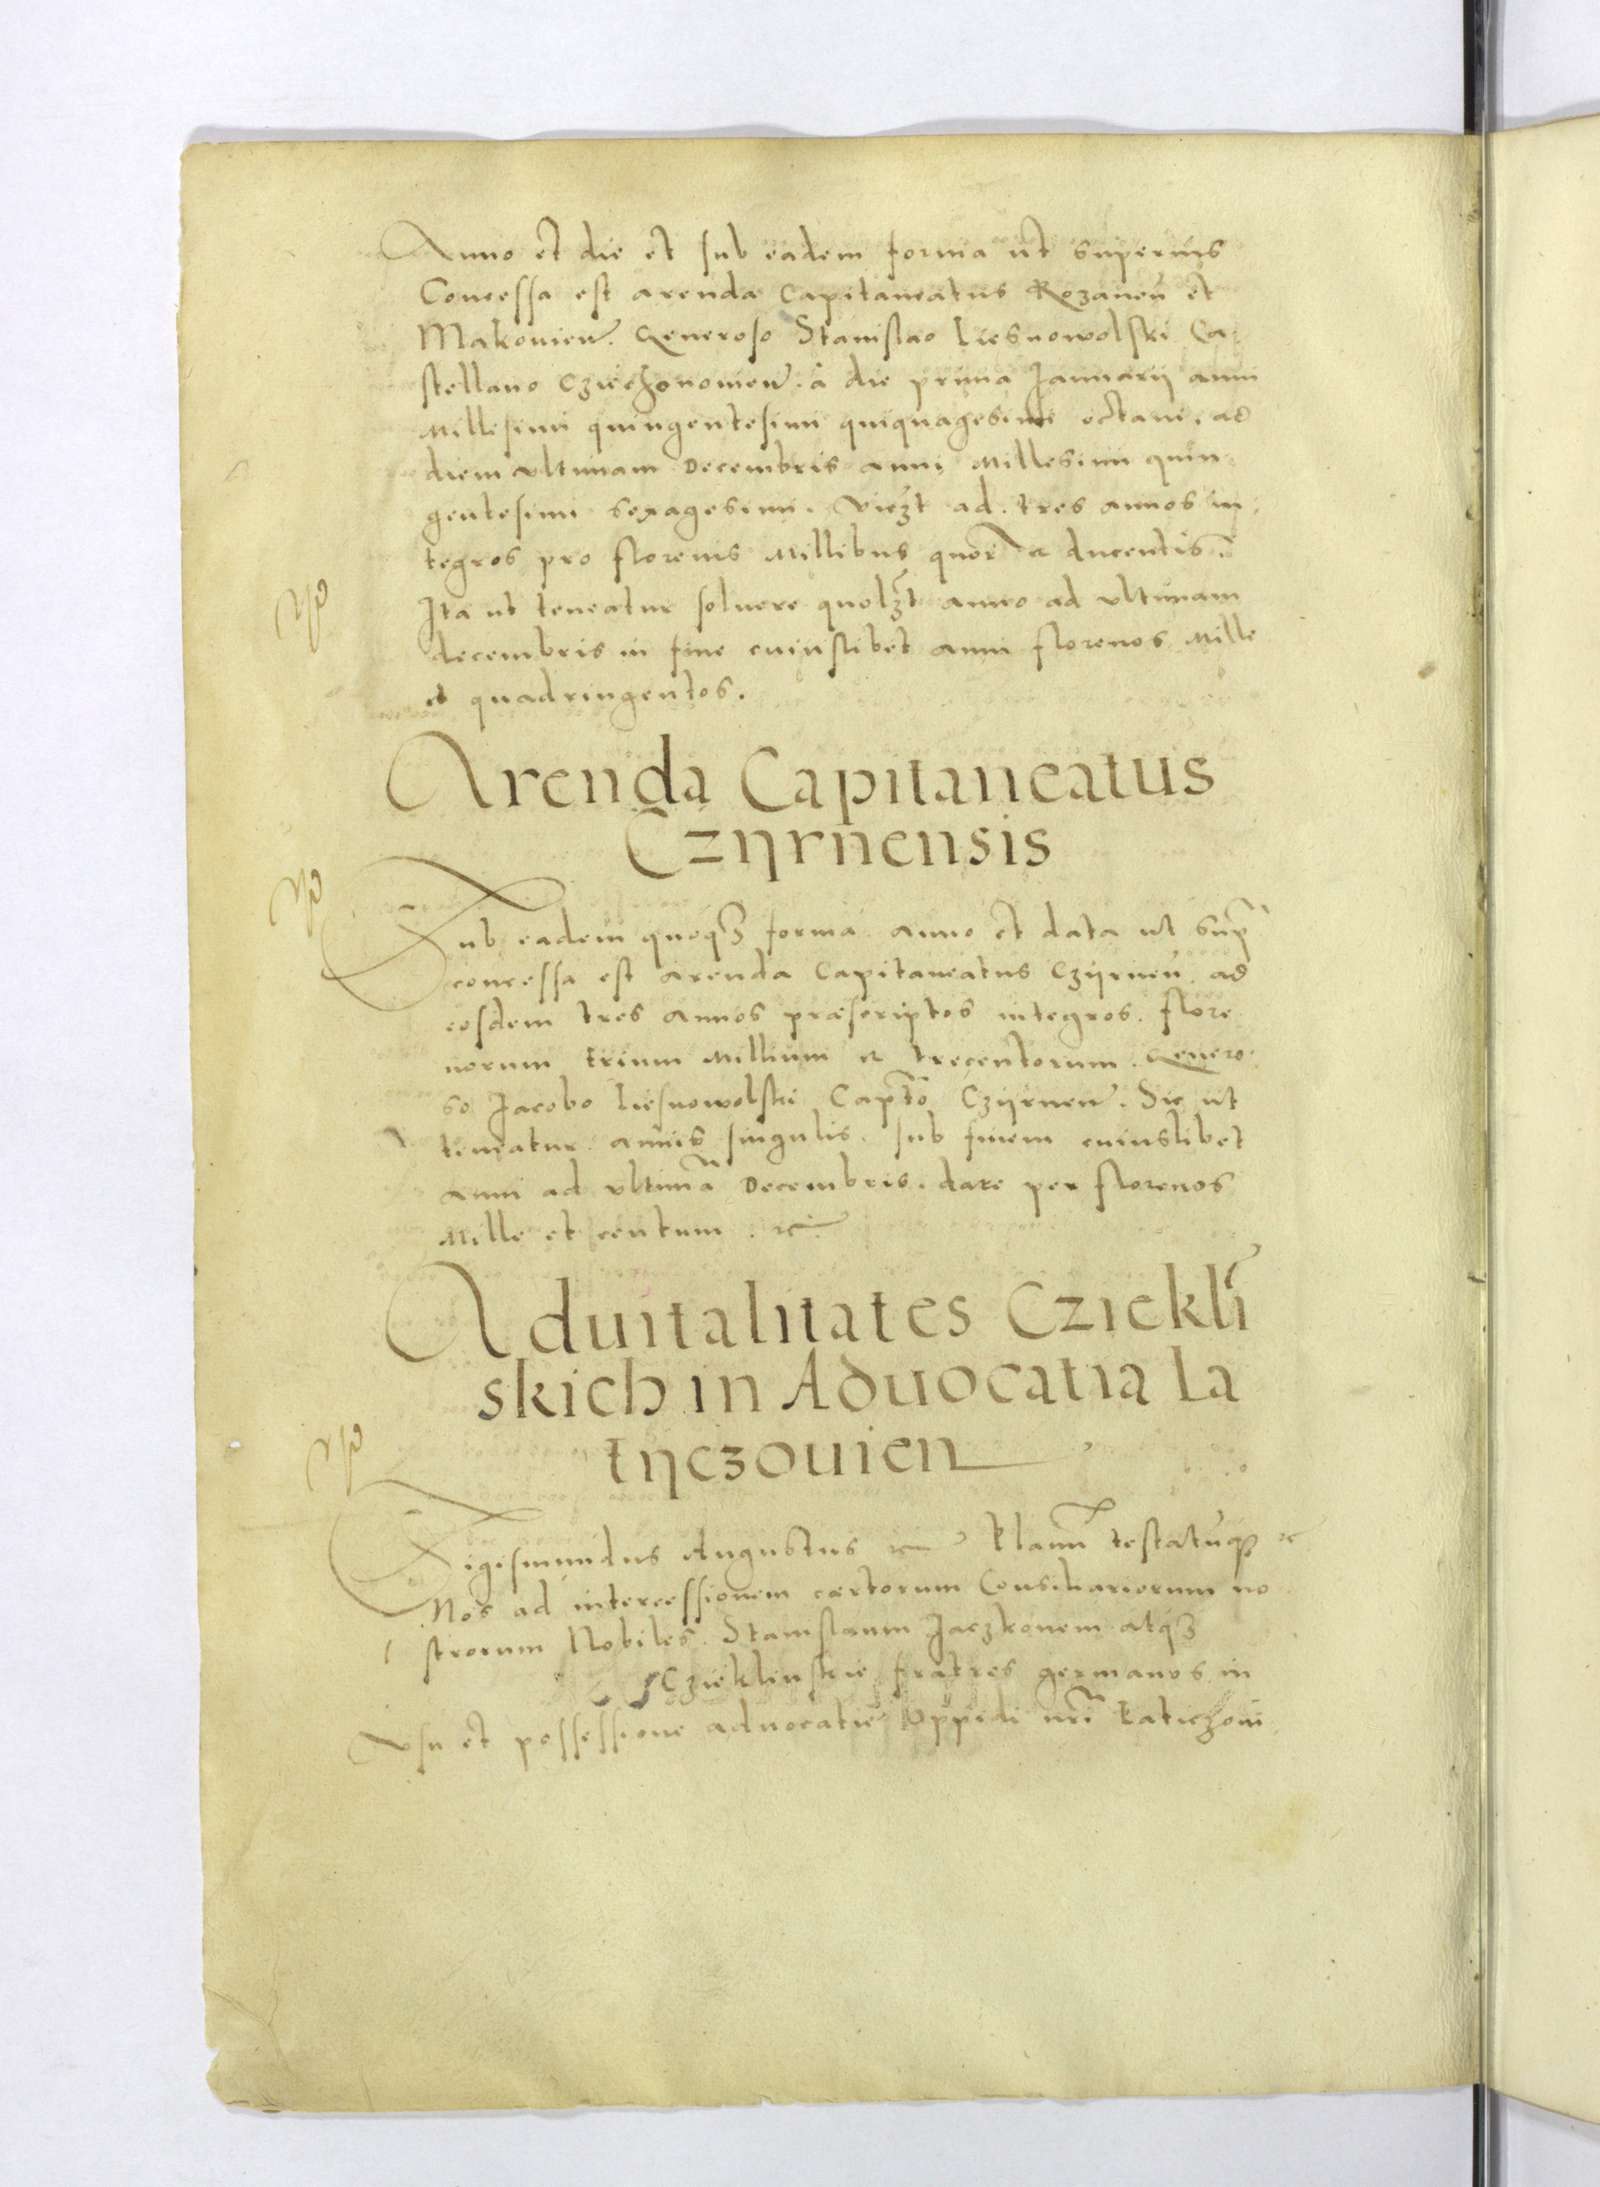 Anno et die et sub eadem forma ut superius
Concessa est arenda Capitaneatus Rozanen̄ et
Makouien̄. Generoso Stanislao Liesnowolski Ca-
stellano Cziechonouien̄. à die prima Januarij anni
Millesimi quingentesimi quiquagesimi octaui, ad
diem ultimam Decembris anni Millesimi quin-
gentesimi sexagesimi. Viczt ad tres annos in-
tegros pro florenis Millibus quor̄ et ducentis.
Ita ut teneatur soluere quolzt anno ad ultimam
decembris in fine cuiuslibet anni florenos Mille
et quadringentos.
Arenda Capitaneatus
Czyrnensis
Sub eadem quoqз forma anno et data ut supr̄
concessa est arenda Capitaneatus Czyrnen̄ ad
eosdem tres annos præscriptos integros. flore-
norum trium Millium et trecentorum. Genero-
so Jacobo Liesnowolski Captō Czyrnen̄. Sic ut
teneatur annis singulis sub finem cuiuslibet
anni ad ultimā Decembris. dare per florenos
Mille et centum. etc
Aduitalitates Cziekli-
skich in Aduocatia La
tyczouien
Sigismundus Augustus etc Man̄ testatūqз etc
Nos ad intercessionem certorum Consiliariorum no
strorum Nobiles. Stanislaum Jaczkonem atqз
Czieklinskie fratres germanos in
Usu et possessione aduocatie Oppidi nr̄i Latichoui